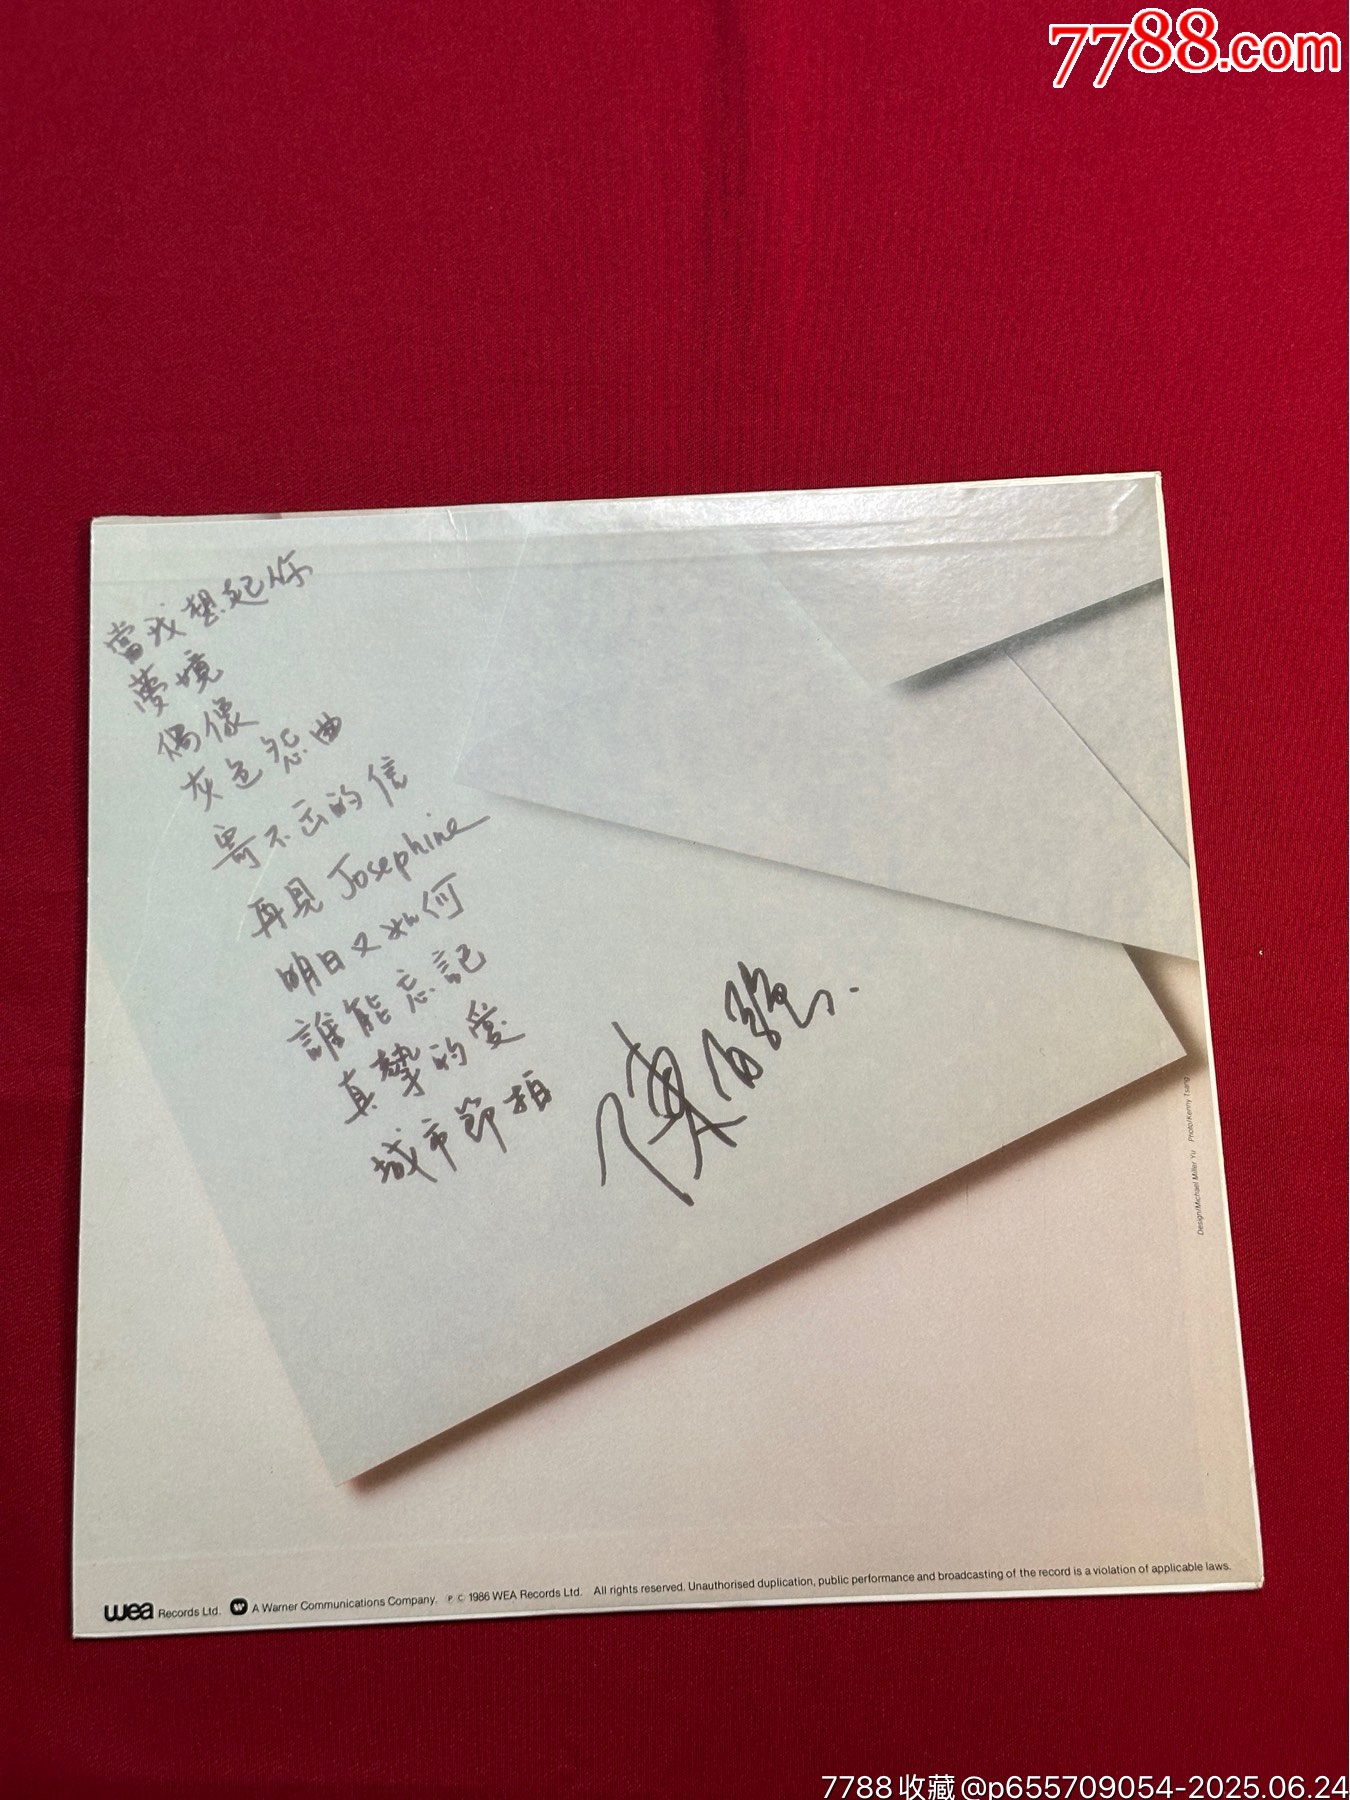 7788.com
當我想起你
夢境
偶像
灰色怨曲
寄不出的信
再見 Josephine
明日又如何
誰能忘記
真摯的愛
城市節拍
陳百強
Design/Michael Miller Yu Photo/Kenny Tsang
wea Records Ltd. A Warner Communications Company. ℗ © 1986 WEA Records Ltd. All rights reserved. Unauthorised duplication, public performance and broadcasting of the record is a violation of applicable laws.
7788收藏@p655709054-2025.06.24